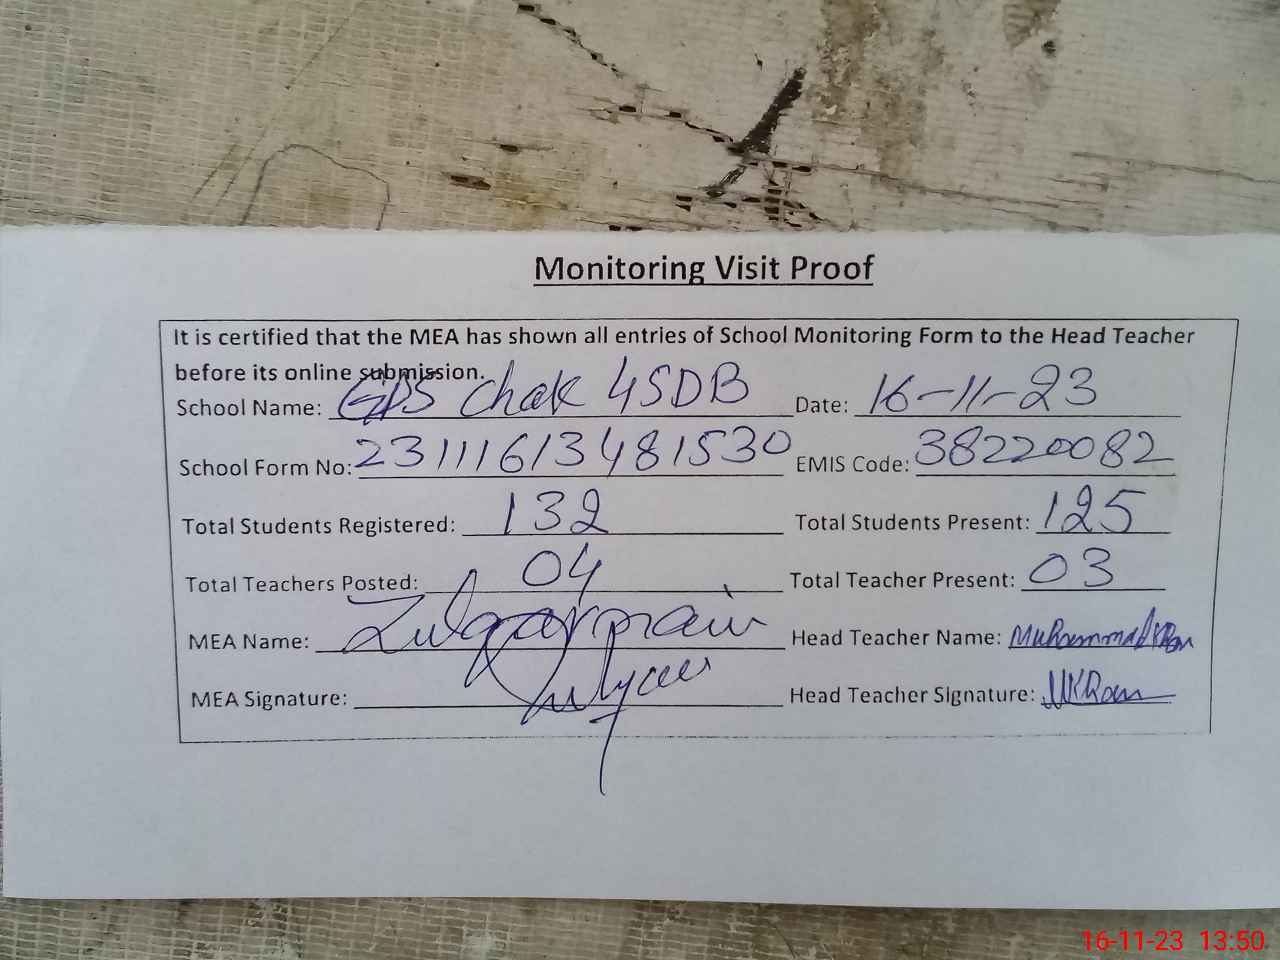 Monitoring Visit Proof
It is certified that the MEA has shown all entries of School Monitoring Form to the Head Teacher
before its online submission.
School Name: GPS Chak 45DB Date: 16-11-23
School Form No: 23111613481530 EMIS Code: 38220082
Total Students Registered: 132 Total Students Present: 125
Total Teachers Posted: 04 Total Teacher Present: 03
MEA Name: Head Teacher Name: Muhammad
MEA Signature: Head Teacher Signature:
16-11-23 13:50